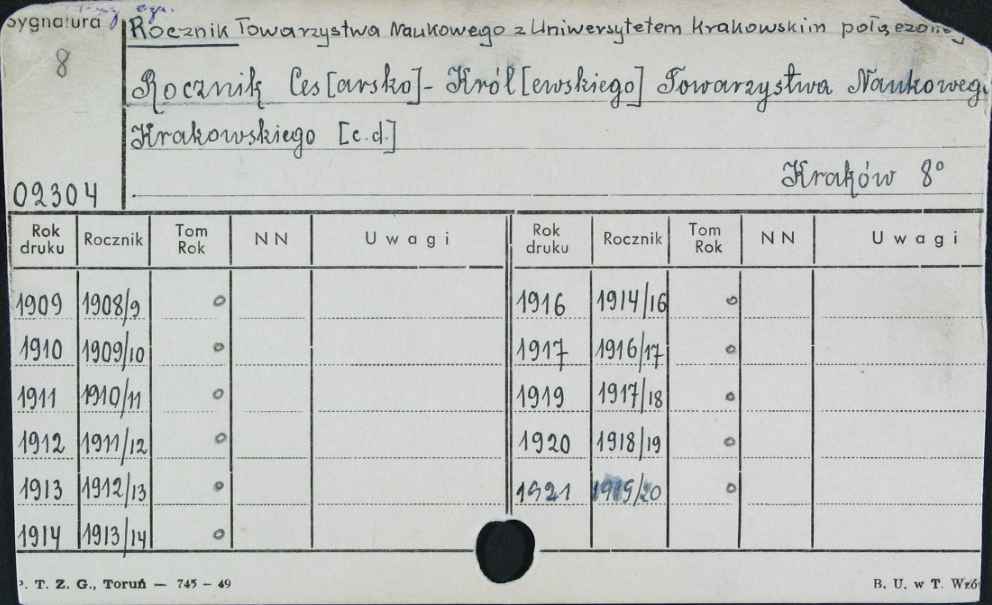 Sygnatura
8
02304
Rocznik Towarzystwa Naukowego z Uniwersytetem Krakowskim połączonego
Rocznik Ces[arsko]- Król[ewskiego] Towarzystwa Naukowego
Krakowskiego [c.d.]
Kraków 8°
Rok druku Rocznik Tom Rok NN Uwagi Rok druku Rocznik Tom Rok NN Uwagi
1909 1908/9 o 1916 1914/16 o
1910 1909/10 o 1917 1916/17 o
1911 1910/11 o 1919 1917/18 o
1912 1911/12 o 1920 1918/19 o
1913 1912/13 o 1921 1919/20 o
1914 1913/14 o
P. T. Z. G., Toruń — 745 – 49 B. U. w T. Wzó